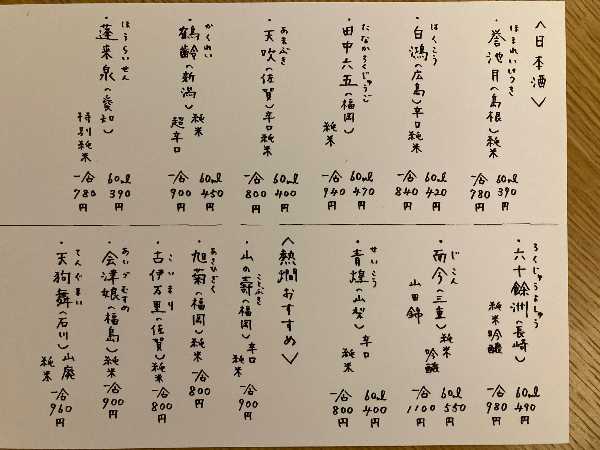 〈日本酒〉
ほまれいけつき
・誉池月(島根)純米
60ml 390
一合 780円
はくこう
・白鴻(広島)辛口純米
60ml 420
一合 840円
たなかろくじゅうご
・田中六五(福岡)
純米
60ml 470
一合 940円
あまぶき
・天吹(佐賀)辛口純米
60ml 400
一合 800円
かくれい
・鶴齢(新潟)純米
超辛口
60ml 450
一合 900円
ほうらいせん
・蓬来泉(愛知)
特別純米
60ml 390
一合 780円
ろくじゅうよしゅう
・六十餘洲(長崎)
純米吟醸
60ml 490
一合 980円
じこん
・而今(三重)純米吟醸
山田錦
60ml 550
一合 1100円
せいこう
・青煌(山梨)辛口
純米
60ml 400
一合 800円
〈熱燗おすすめ〉
ことぶき
・山の壽(福岡)辛口純米
一合 900円
あさひぎく
・旭菊(福岡)純米
一合 800円
こいまり
・古伊万里(佐賀)純米
一合 800円
あいづむすめ
・会津娘(福島)純米
一合 900円
てんぐまい
・天狗舞(石川)山廃
純米
一合 960円